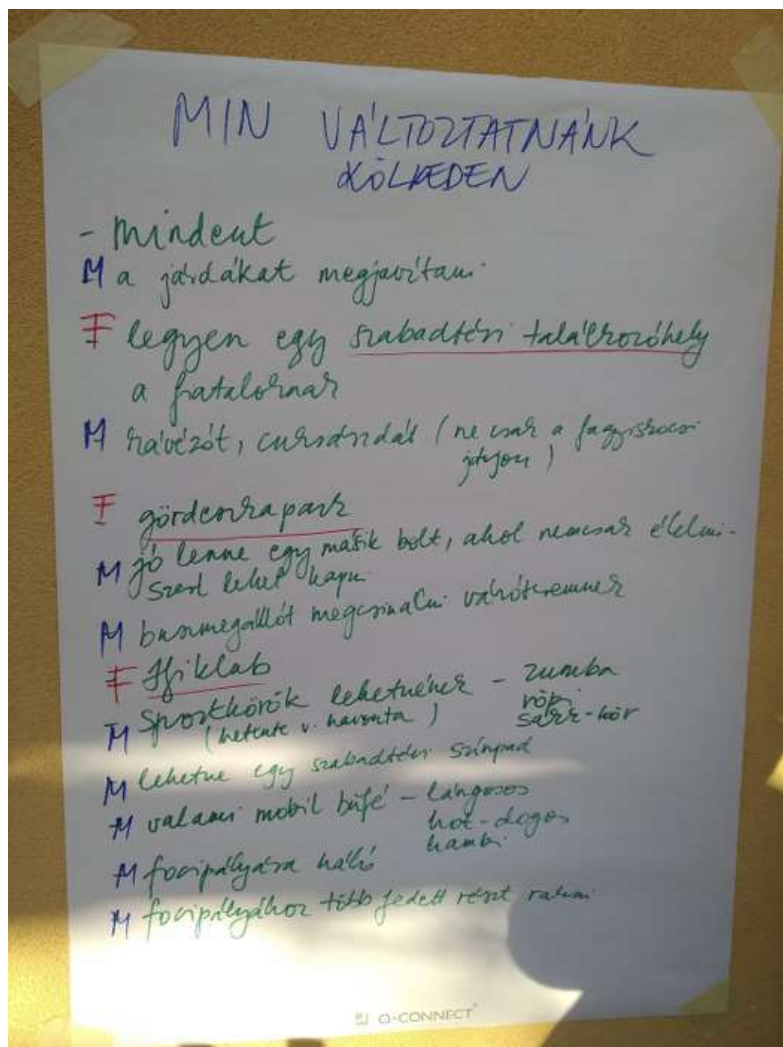 MIN VÁLTOZTATNÁNK
KÖLKEDEN
- Mindent
M a járdákat megjavítani
F legyen egy szabadtéri találkozóhely
a fiataloknak
M kávézót, cukrászdát (ne csak a fagyiskocsi
jöjjön)
F gördeszkapark
M jó lenne egy másik bolt, ahol nemcsak élelmi-
szert lehet kapni
M buszmegállót megcsinálni váróteremnek
F Ifiklub
M Sportkörök lehetnének - zumba
(hetente v. havonta) röpi
sakk-kör
M lehetne egy szabadtéri színpad
M valami mobil büfé - lángosos
hot-dogos
hambi
M focipályára háló
M focipályához több fedett részt rakni
Q-CONNECT